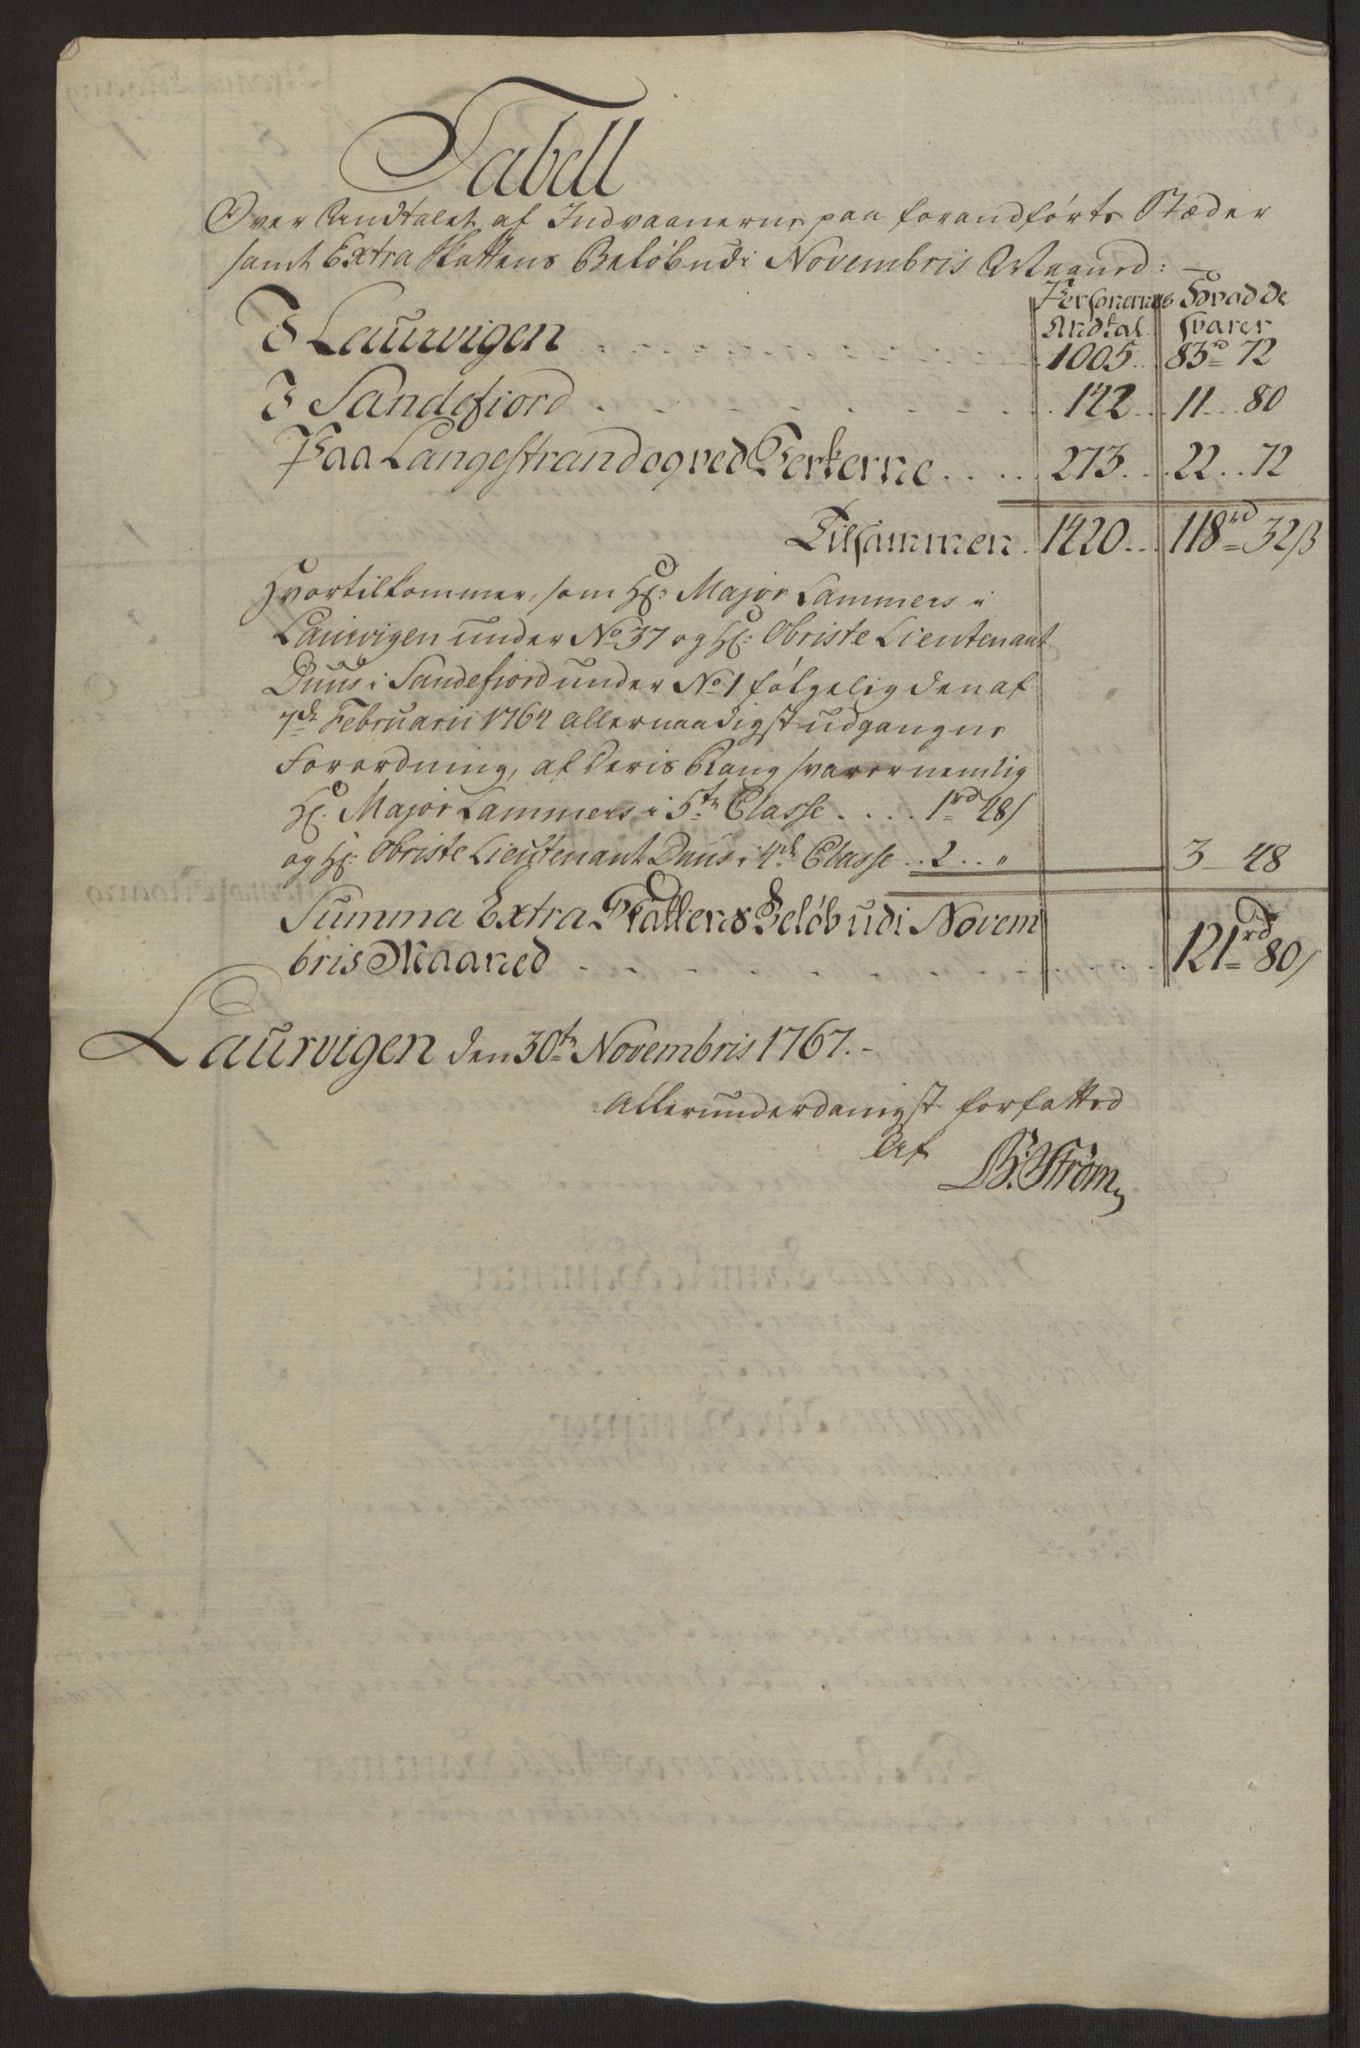 Tabell
Over Andtalet af Indvaanerne paa foranførte Stæder
samt Extra Skattens Beløb udi Novembris Maaned:
Personernes Andtal. Hvad de svarer
I Laurvigen . . . 1005. 83rd 72
I Sandefiord . . . 142. 11 . 80
Paa Langestrand og ved Verkerne . . . 273. 22 . . 72
Tilsammen. 1420. . . 118rd 32ß
Hvortilkommer, som Hr: Major Lammers i
Laurvigen under No 37 og Hr: Obriste Lieutenant
Duus i Sandefiord under No 1 følgelig den af
7de Februarii 1764 allernaadigst udgangne
Forordning, af deris Rang svarer nemlig
Hr. Major Lammers i 5te Classe . . . . 1rd 48ß
og Hr: Obriste Lieutenant Duus i 4de Classe . . 2 . . " 3 48
Summa Extra Skattens Beløb udi Novem
bris Maaned . . . 121rd 80ß
Laurvigen den 30te Novembris 1767.
Allerunderdanigst forfatted
Af B. Strøm